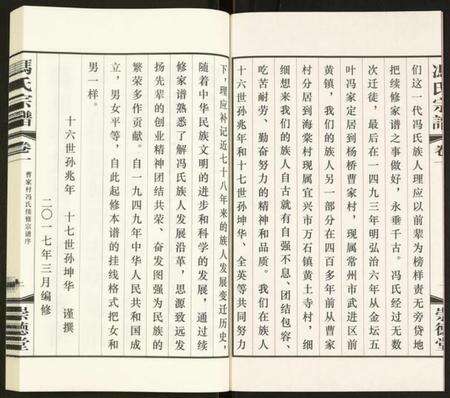 馮氏宗譜
卷一
们这一代冯氏族人理应以前辈为榜样责无旁贷地
把续修家谱之事做好，永垂千古。冯氏经过无数
次迁徒，最后在一四九三年明弘治六年从金坛五
叶冯家定居到杨桥曹家村，现属常州市武进区前
黄镇，我们的族人另一部分在四百多年前从曹家
村分居到海棠村现属宜兴市万石镇黄土寺村，细
细想来我们的族人自古就有自强不息、团结包容、
吃苦耐劳、勤奋努力的精神和品质。我们在族人
十六世孙兆年和十七世孙坤华、全英等共同努力
崇德堂
馮氏宗譜
卷一
曹家村冯氏续修宗谱序
下，理应补记近七十八年来的族人发展变迁历史，
随着中华民族文明的进步和科学的发展，通过续
修家谱熟悉了解冯氏族人发展沿革，思源致远发
扬先辈的创业精神团结共荣、奋发图强为民族的
繁荣多作贡献。自一九四九年中华人民共和国成
立，男女平等，自此起修本谱的挂线格式把女和
男一样。
十六世孙兆年 十七世孙坤华 谨撰
二〇一七年三月编修
崇德堂